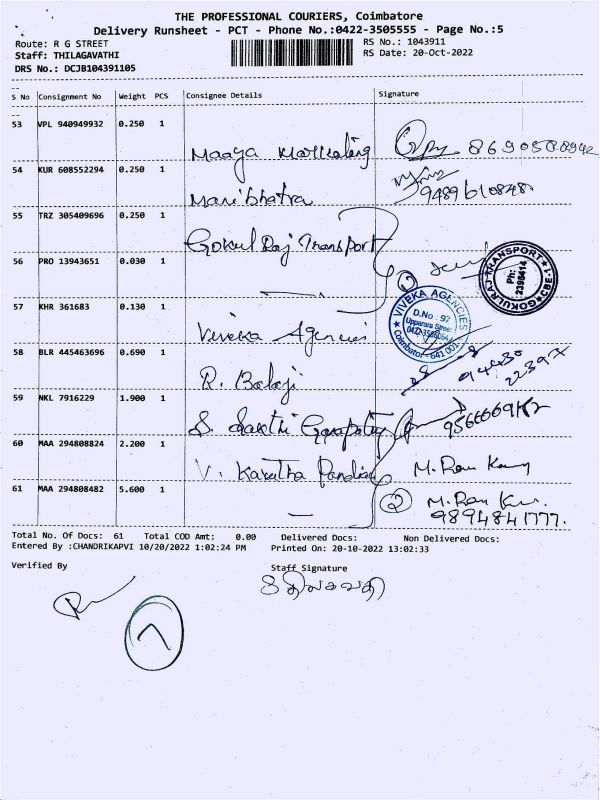 THE PROFESSIONAL COURIERS, Coimbatore
Delivery Runsheet - PCT - Phone No.:0422-3505555 - Page No.:5
Route: R G STREET
RS No.: 1043911
Staff: THILAGAVATHI
RS Date: 20-Oct-2022
DRS No.: DCJB104391105
S No Consignment No Weight PCS Consignee Details Signature
53 VPL 940949932 0.250 1
Maaya
54 KUR 608552294 0.250 1
Manibhatra
55 TRZ 305409696 0.250 1
Gokul Raj Transport
56 PRO 13943651 0.030 1
GOKULRAJ TRANSPORT
Ph:
2395414
CBE-1
57 KHR 361683 0.130 1
Viveka Agencies
VIVEKA AGENCIES
D.No : 97
Coimbatore - 641 001
58 BLR 445463696 0.690 1
R. Balaji
59 NKL 7916229 1.900 1
S. Sakthi Ganapathy
60 MAA 294808824 2.200 1
V. Karutha Pandian
61 MAA 294808482 5.600 1
2
9894841777.
Total No. Of Docs: 61 Total COD Amt: 0.00 Delivered Docs: Non Delivered Docs:
Entered By :CHANDRIKAPVI 10/20/2022 1:02:24 PM Printed On: 20-10-2022 13:02:33
Verified By
Staff Signature
திலகவதி
7